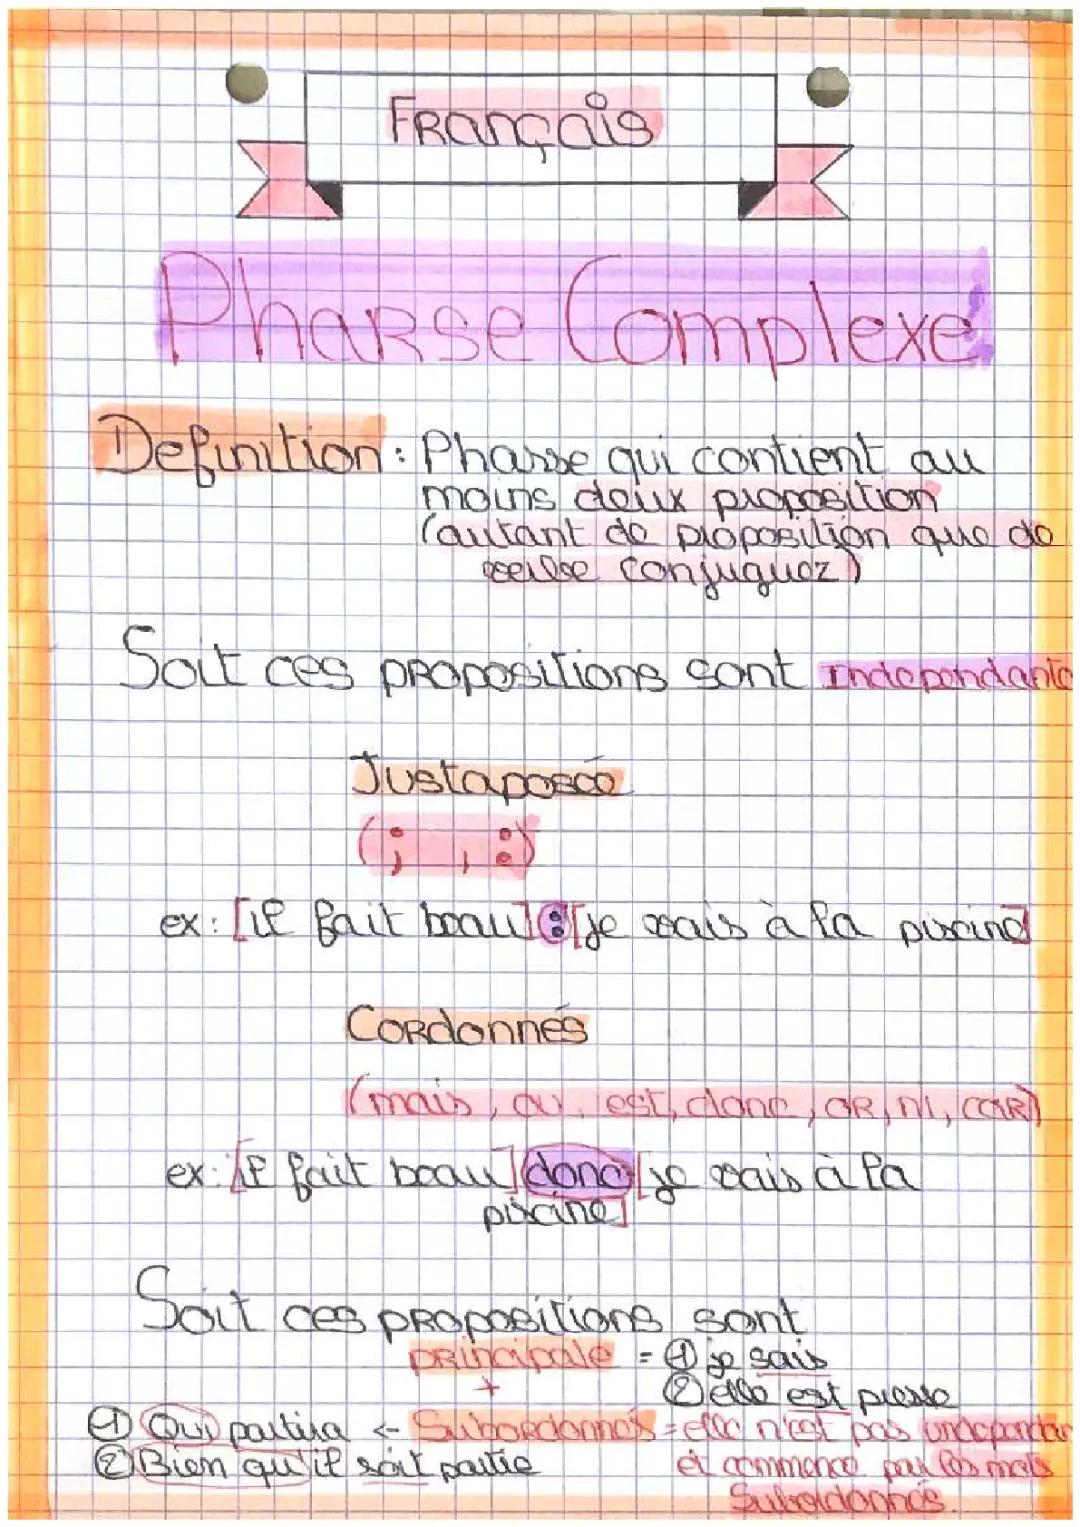 Français
Pharse Complexe
Definition : Pharse qui contient au
moins deux proposition
(autant de proposition que de
verbe conjuguez)
Soit ces propositions sont independante
Justaposée
(; , :)
ex: [il fait beau] : [je vais à la piscine]
Cordonnés
(mais, ou, est, donc, or, ni, car)
ex: [il fait beau] donc [je vais à la
piscine]
Soit ces propositions sont
principale = ① je sais
+ ② elle est
① Qui partira <- Subordonnés = elle n'est pas independan
② Bien qu'il soit partie et commence par les mots
Subordonnés.